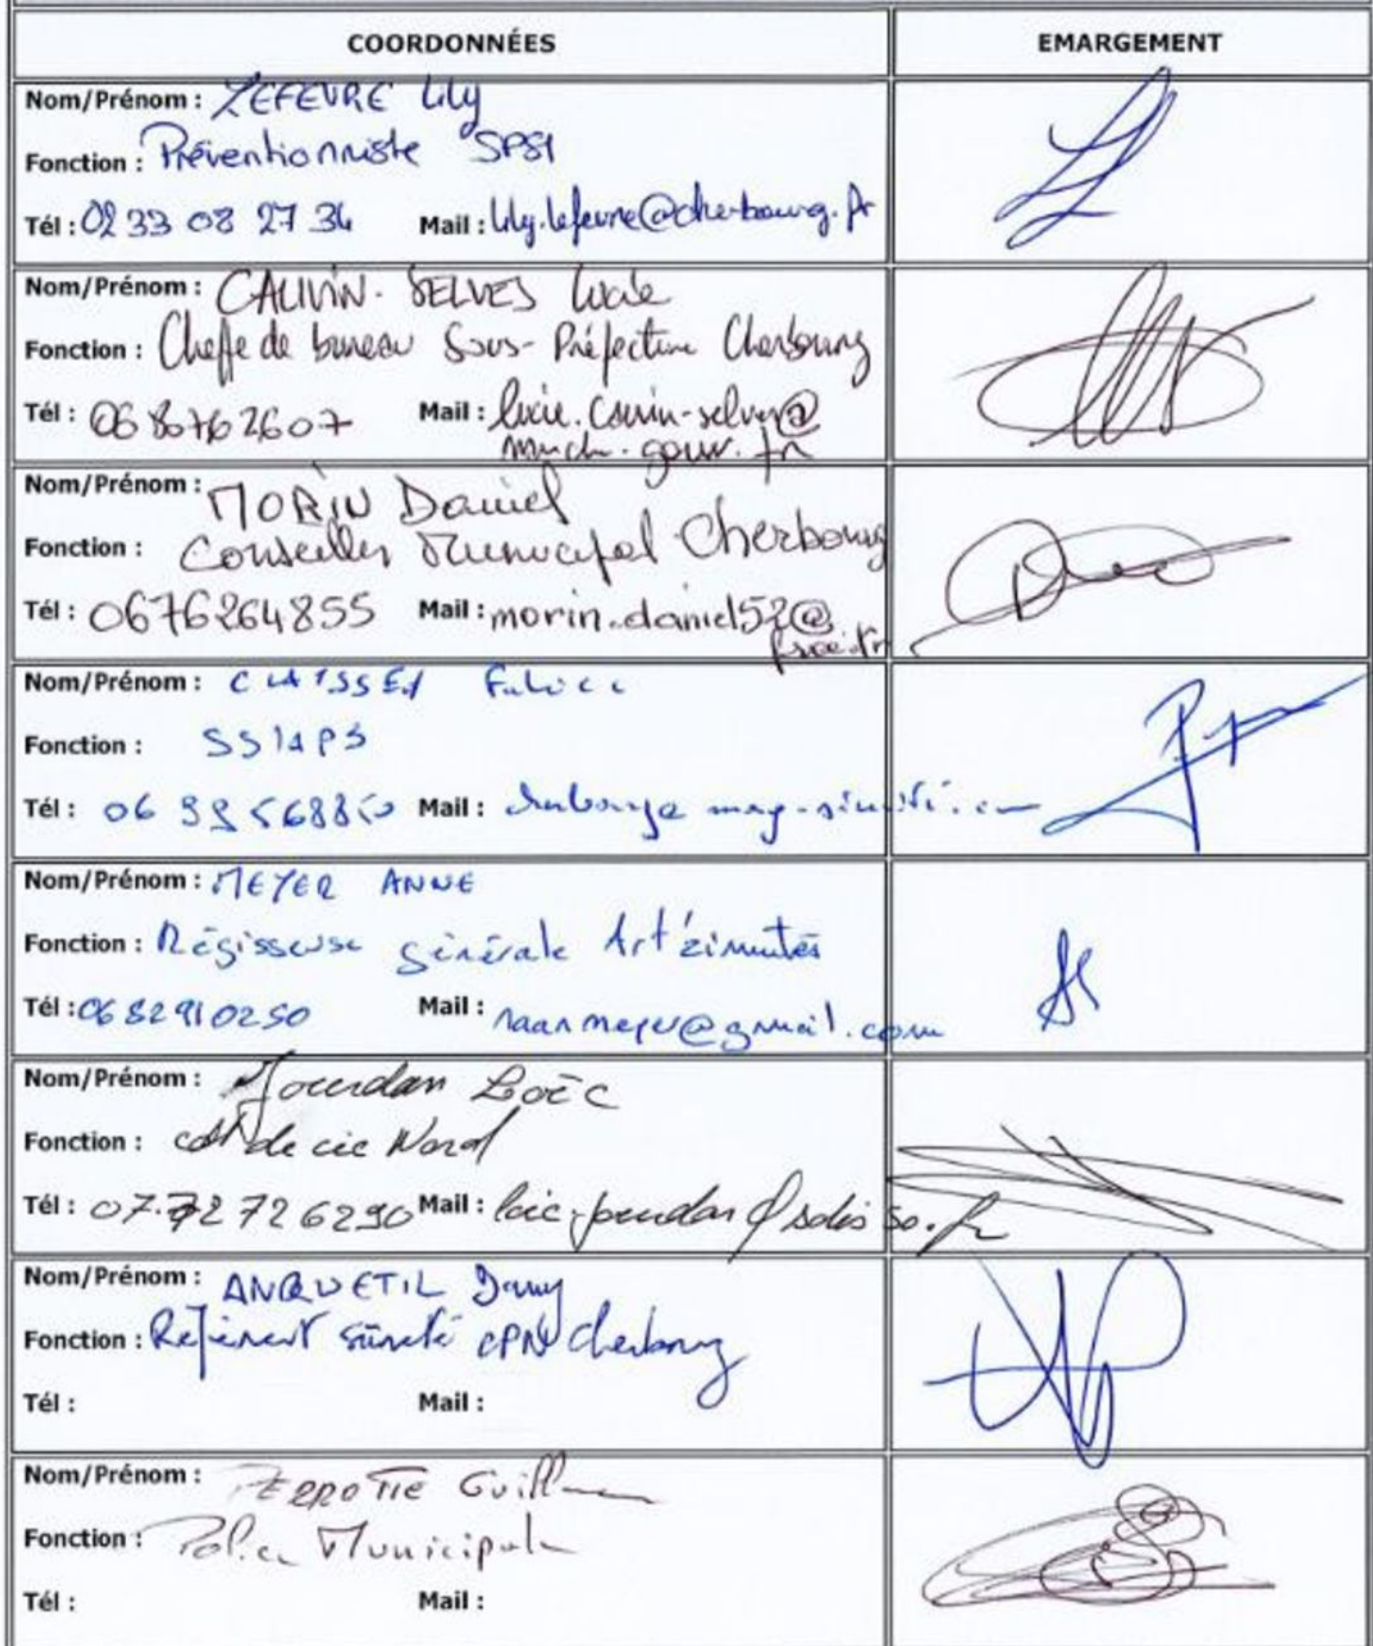 COORDONNÉES EMARGEMENT
Nom/Prénom : LEFEVRE Lily
Fonction : Préventionniste SPSI
Tél : 02 33 08 27 36 Mail : lily.lefevre@cherbourg.fr
Nom/Prénom : CAUVIN-SELVES Lucie
Fonction : Cheffe de bureau Sous-Préfecture Cherbourg
Tél : 06 80762607 Mail : lucie.cauvin-selves@
manche.gouv.fr
Nom/Prénom : MORIN Daniel
Fonction : Conseiller Municipal Cherbourg
Tél : 0676264855 Mail : morin.daniel52@
free.fr
Nom/Prénom :
Fonction : SSIAP3
Tél : 06 Mail :
Nom/Prénom : MEYER ANNE
Fonction : Régisseuse générale Art'zimutés
Tél : 0682910250 Mail : naanmeyer@gmail.com
Nom/Prénom : Jourdan Loïc
Fonction : de cie Nord
Tél : 07.72 72 6290 Mail : loic.jourdan@sdis50.fr
Nom/Prénom : ANQUETIL Dany
Fonction : Référent sûreté CPN Cherbourg
Tél : Mail :
Nom/Prénom : PERROTTE Guillaume
Fonction : Police Municipale
Tél : Mail :